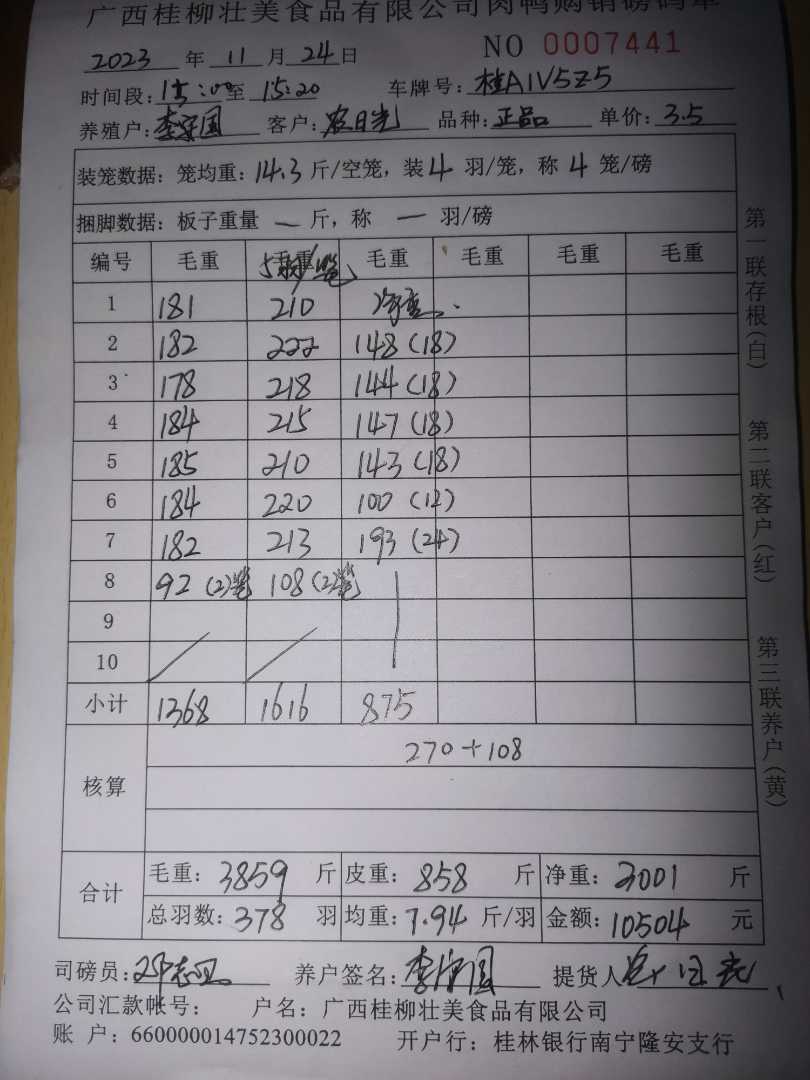 广西桂柳壮美食品有限公司肉鸭购销磅码单
2023 年 11 月 24 日 NO 0007441
时间段: 15:00 至 15:20 车牌号: 桂A1V5Z5
养殖户: 李守国 客户: 农日光 品种: 正品 单价: 3.5
装笼数据: 笼均重: 14.3 斤/空笼, 装 4 羽/笼, 称 4 笼/磅
捆脚数据: 板子重量 — 斤, 称 — 羽/磅
编号 毛重 毛重 5羽/笼 毛重 毛重 毛重 毛重
1 181 210 净重
2 182 222 148 (18)
3 178 218 144 (18)
4 184 215 147 (18)
5 185 210 143 (18)
6 184 220 100 (12)
7 182 213 193 (24)
8 92 (2)笼 108 (2)笼
9
10
小计 1368 1616 875
核算 270+108
合计
毛重: 3859 斤 皮重: 858 斤 净重: 3001 斤
总羽数: 378 羽 均重: 7.94 斤/羽 金额: 10504 元
司磅员: 养户签名: 李守国 提货人
公司汇款帐号: 户名: 广西桂柳壮美食品有限公司
账 户: 660000014752300022 开户行: 桂林银行南宁隆安支行
第一联存根(白)
第二联客户(红)
第三联养户(黄)